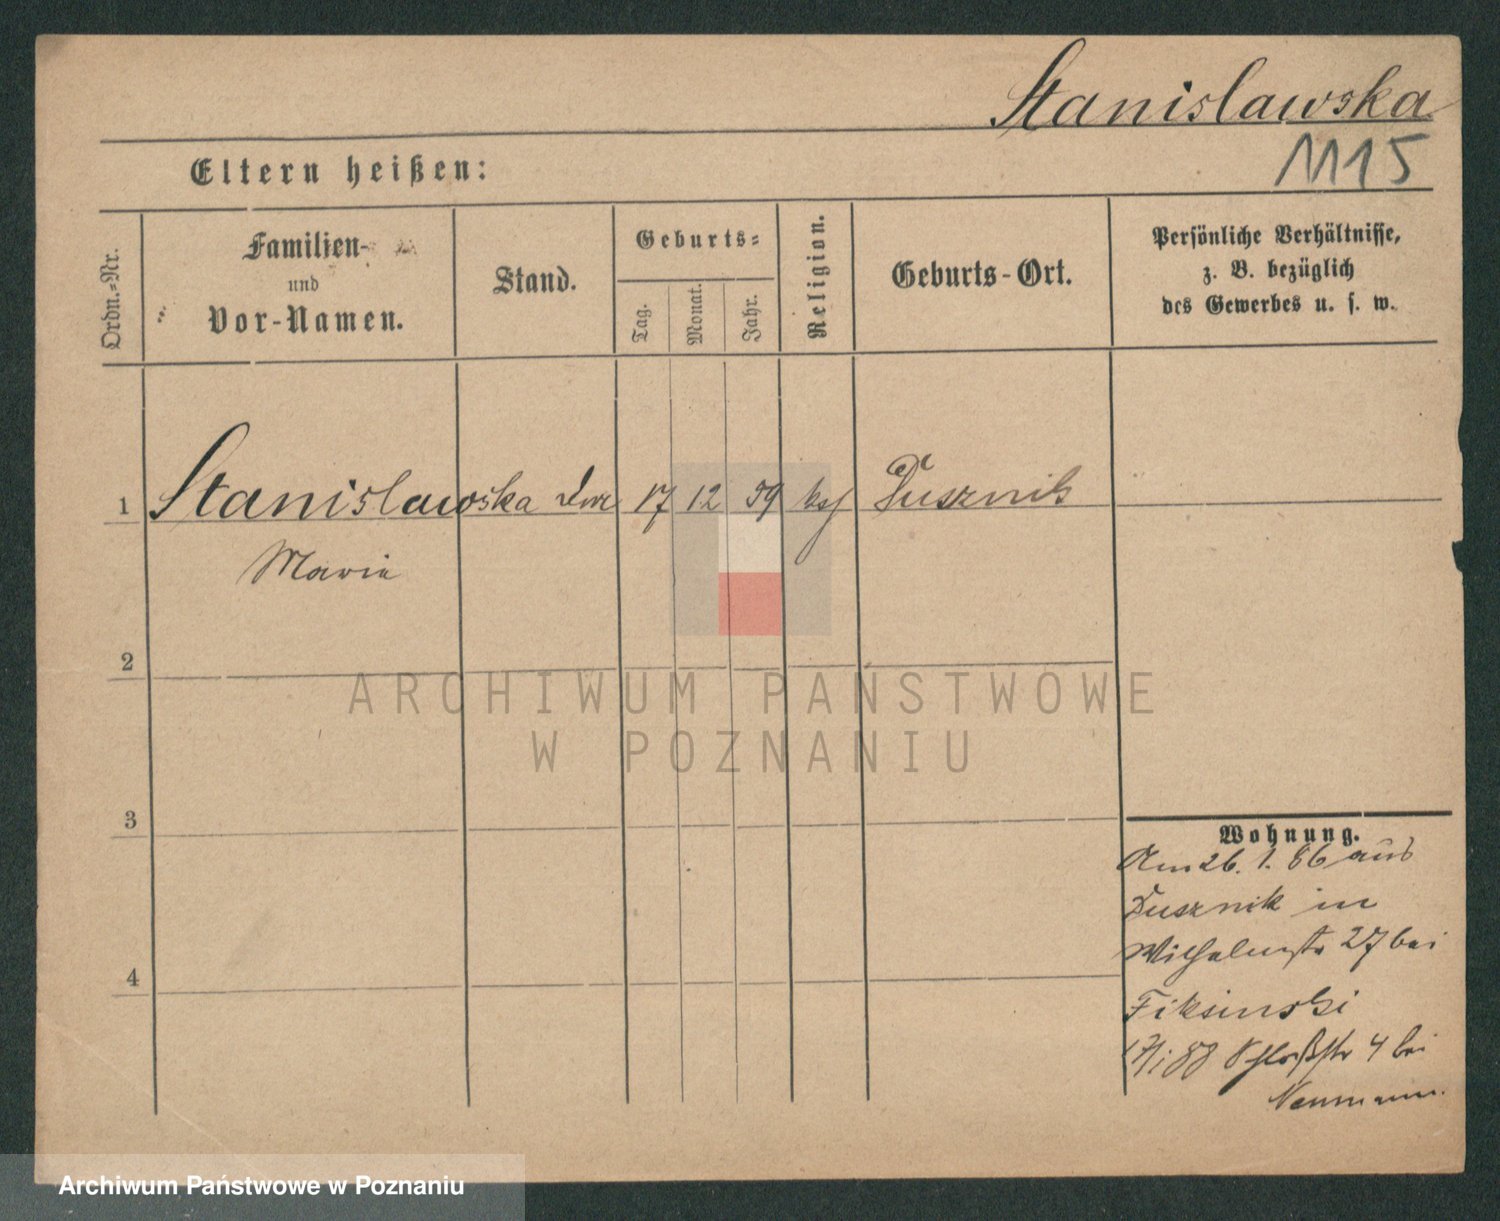 Stanislawska
1115
Eltern heißen:
Ordn.-Nr.
Familien-
und
Vor-Namen.
Stand.
Geburts-
Tag.
Monat.
Jahr.
Religion.
Geburts-Ort.
Persönliche Verhältnisse,
z. B. bezüglich
des Gewerbes u. s. w.
1 Stanislawska 17 12 59 Dusznik
Maria
2
3
4
Wohnung.
Am 26. 1. 86 aus
Dusznik in
Wilhelmstr 27 bei
Fiksinski
88 Schloßstr 4 bei
Neumann.
ARCHIWUM PAŃSTWOWE
W POZNANIU
Archiwum Państwowe w Poznaniu